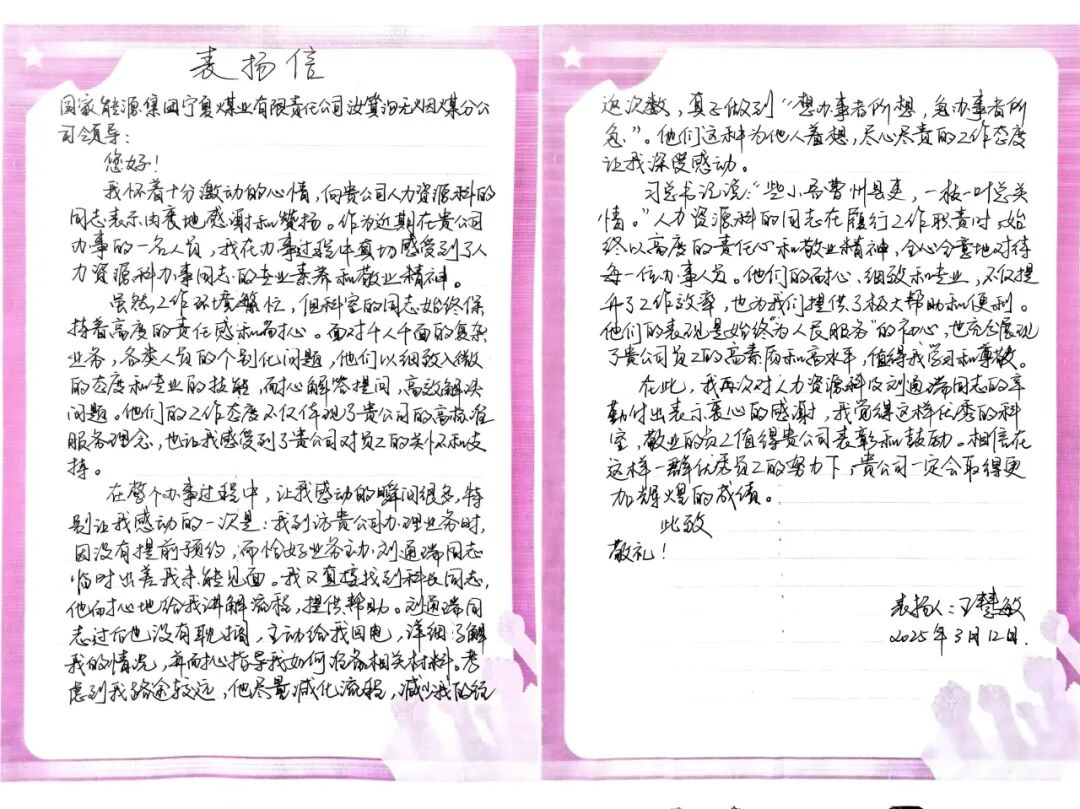 表扬信
国家能源集团宁夏煤业有限责任公司汝箕沟无烟煤分公
司领导：
您好！
我怀着十分激动的心情，向贵公司人力资源科的
同志表示由衷地感谢和赞扬。作为近期在贵公司
办事的一名人员，我在办事过程中真切感受到了人
力资源科办事同志的专业素养和敬业精神。
虽然工作环境繁忙，但科室的同志始终保
持着高度的责任感和耐心。面对千人千面的复杂
业务，各类人员的个别化问题，他们以细致入微
的态度和专业的技能，耐心解答提问，高效解决
问题。他们的工作态度不仅体现了贵公司的高标准
服务理念，也让我感受到了贵公司对员工的关怀和支
持。
在整个办事过程中，让我感动的瞬间很多，特
别让我感动的一次是：我到访贵公司办理业务时，
因没有提前预约，而恰好业务主办刘通瑞同志
临时出差我未能见面。我又直接找到科长同志，
他耐心地给我讲解流程，提供帮助。刘通瑞同
志过后也没有耽搁，主动给我回电，详细了解
我的情况，并耐心指导我如何准备相关材料。考
虑到我路途较远，他尽量减化流程，减少我的往
返次数，真正做到“想办事者所想，急办事者所
急”。他们这种为他人着想，尽心尽责的工作态度
让我深受感动。
习总书记说：“些小吾曹州县吏，一枝一叶总关
情。”人力资源科的同志在履行工作职责时，始
终以高度的责任心和敬业精神，全心全意地对待
每一位办事人员。他们的耐心、细致和专业，不仅提
升了工作效率，也为我们提供了极大帮助和便利。
他们的表现是始终“为人民服务”的初心，也充分展现
了贵公司员工的高素质和高水平，值得我学习和尊敬。
在此，我再次对人力资源科及刘通瑞同志的辛
勤付出表示衷心的感谢，我觉得这样优秀的科
室，敬业的员工值得贵公司表彰和鼓励。相信在
这样一群优秀员工的努力下，贵公司一定会取得更
加辉煌的成绩。
此致
敬礼！
表扬人：王慧敏
2025年3月12日.